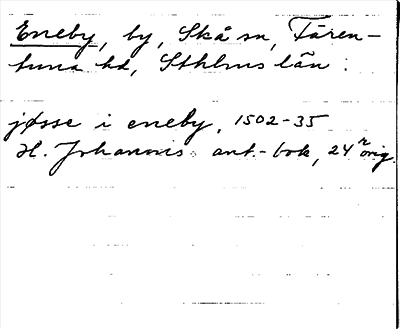 Eneby, by, Skå sn, Fären-
tuna hd, Sthlms län.
jøsse i eneby, 1502-35
H. Johannis ant.-bok, 24 r orig.